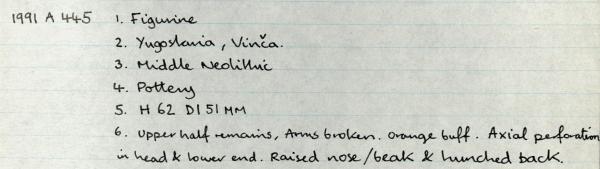 1991 A 445 1. Figurine
2. Yugoslavia, Vinča.
3. Middle Neolithic
4. Pottery
5. H 62 D151 MM
6. Upper half remains, Arms broken. Orange buff. Axial perforation
in head & lower end. Raised nose/beak & hunched back.